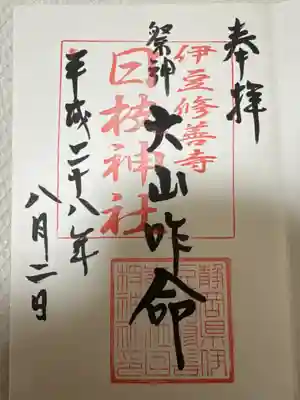 奉拝
伊豆修善寺
日枝神社
祭神 大山咋命
平成二十八年
八月二日